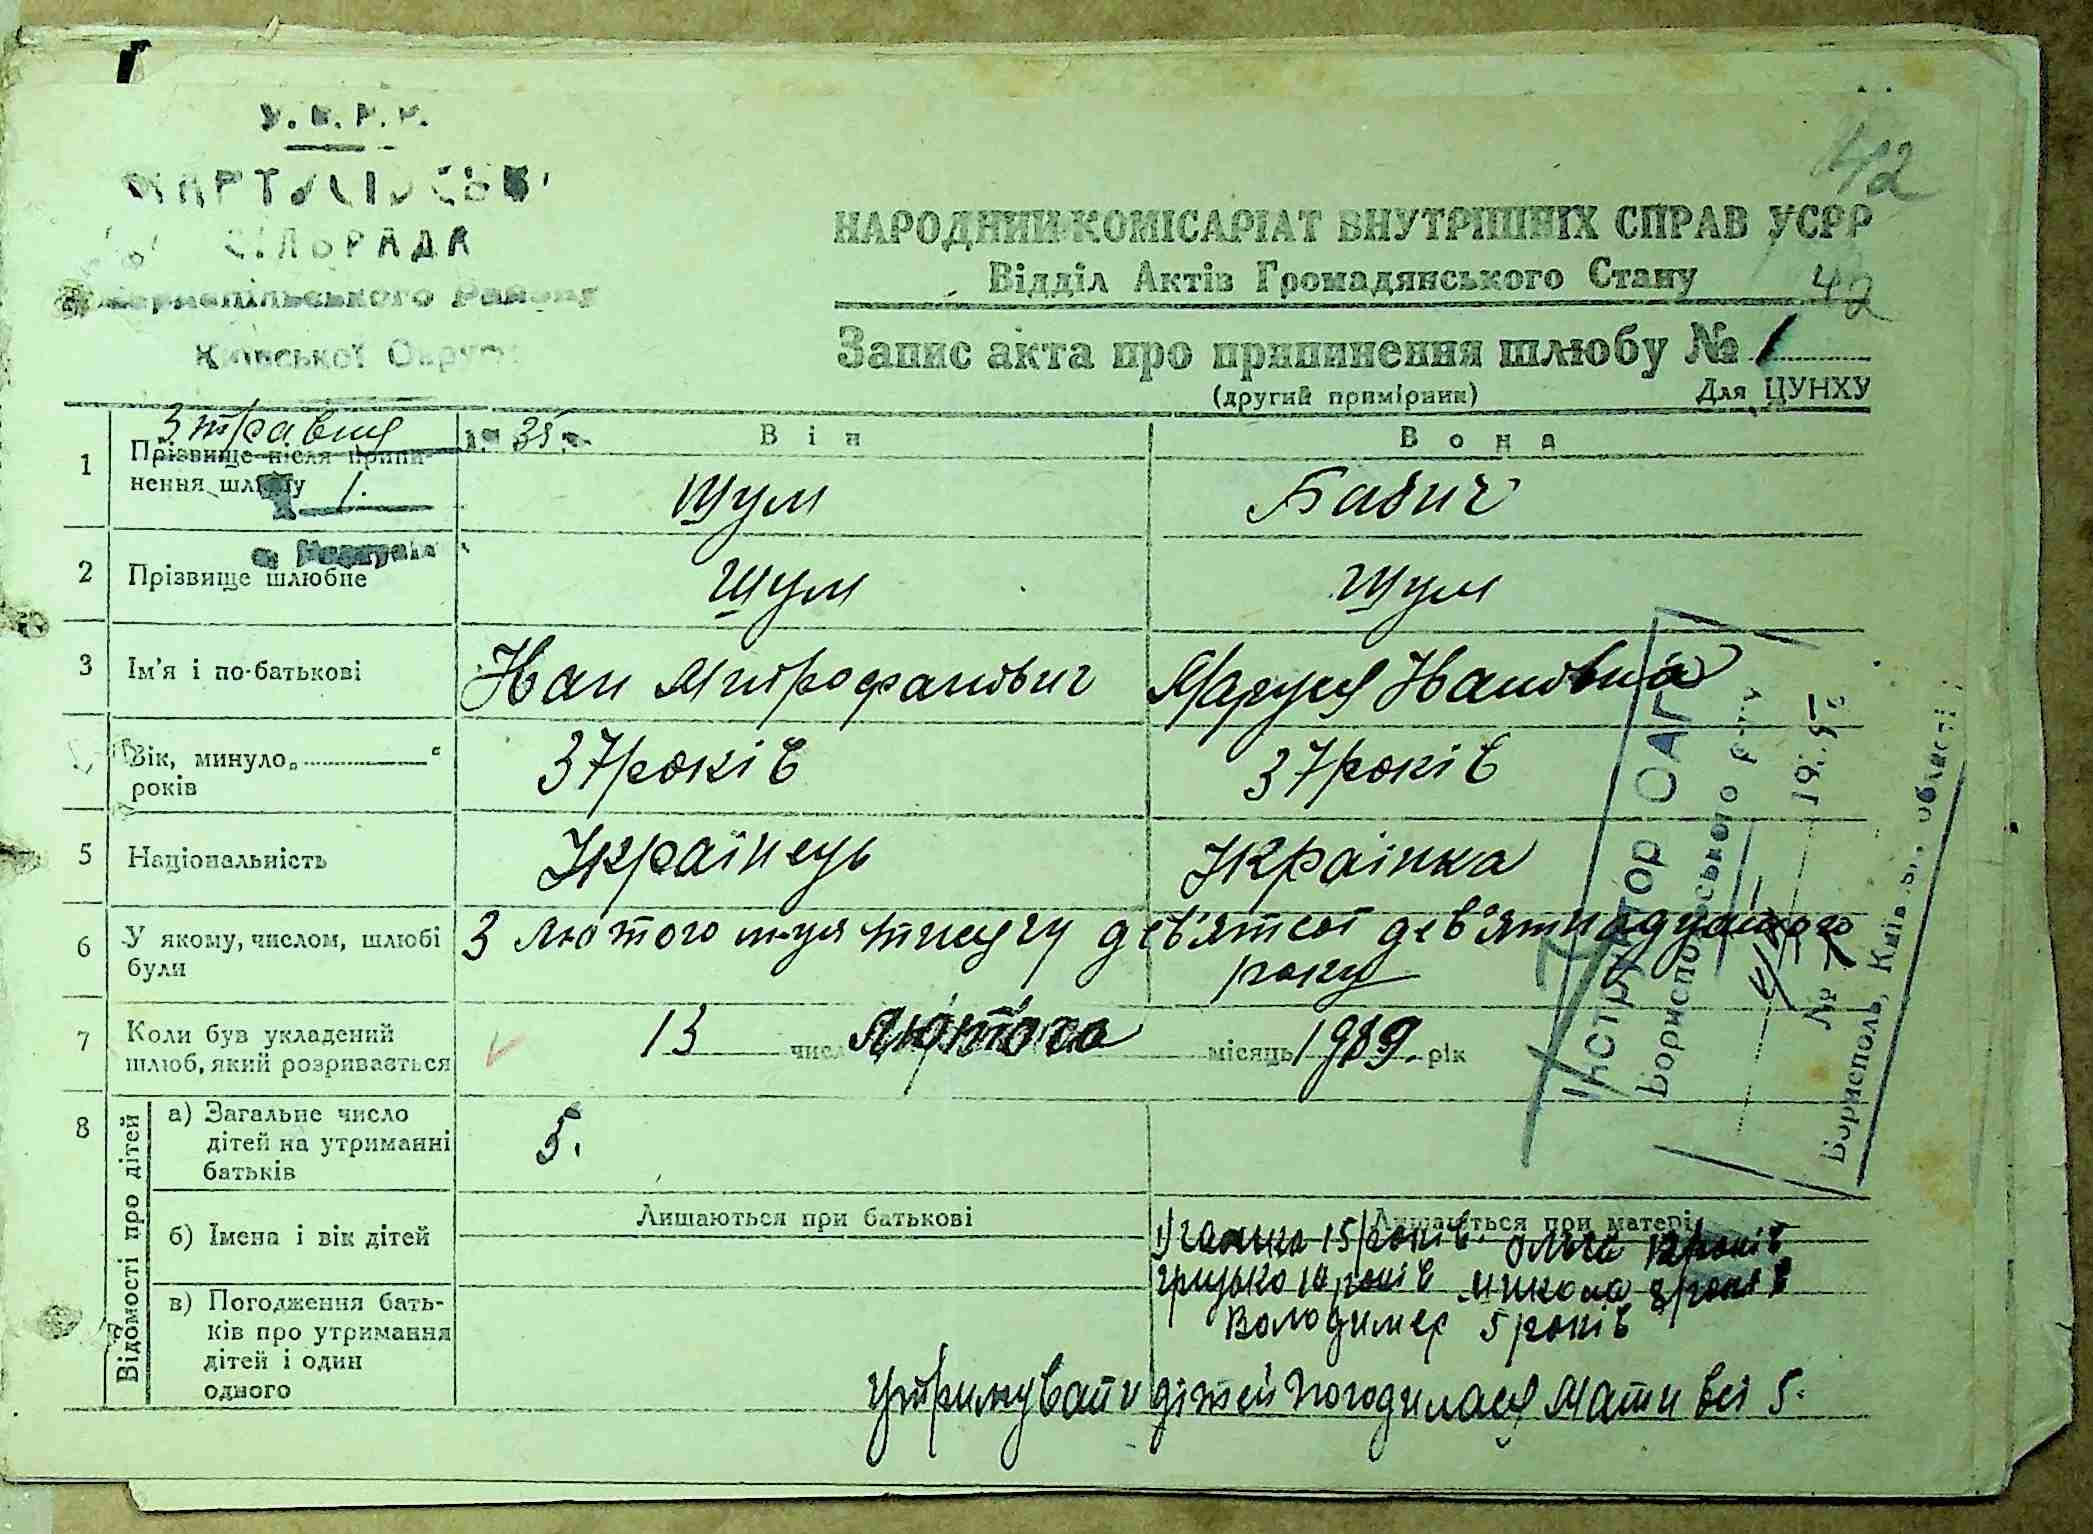 У.С.Р.Р.
МАРТУСІВСЬК
СІЛЬРАДА
Бориспільського Району
Київської Округи
42
НАРОДНИЙ КОМІСАРІАТ ВНУТРІШНІХ СПРАВ УСРР
Відділ Актів Громадянського Стану
42
Запис акта про припинення шлюбу № 1
(другий примірник) Для ЦУНХУ
3 травня 35
Він Вона
1 Прізвище після припи-
нення шлюбу
1.
Шум Бабич
2 Прізвище шлюбне
Шум Шум
3 Ім'я і по-батькові
Іван Митрофанович Маруся Івановна
Вік, минуло „ “
років
37 років 37 років
5 Національність
Українець Українка
6 У якому, числом, шлюбі
були
3 лютого тисячу дев'ятсот дев'ятнадцятого
року
7 Коли був укладений
шлюб, який розривається
13 числ лютого місяць 1919. рік
8 Відомості про дітей
а) Загальне число
дітей на утриманні
батьків
5.
б) Імена і вік дітей
Лишаються при батькові Лишаються при матері
1) ганька 15 років. Ольга 12 років
грицько 10 років микола 8 років
Володимер 5 років
в) Погодження бать-
ків про утримання
дітей і один
одного
Утримувати дітей погодилася Мати всі 5.
Інструктор ОАГ
Бориспольського р-ну
№ 7 19
Борисполь, Київськ. області